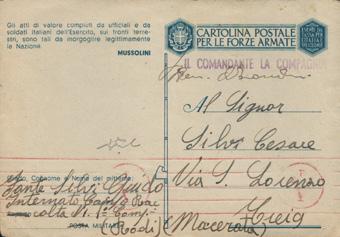 Gli atti di valore compiuti da ufficiali e da
soldati italiani dell'Esercito, sui fronti terre-
stri, sono tali da inorgoglire legittimamente
la Nazione.
MUSSOLINI
CARTOLINA POSTALE
PER LE FORZE ARMATE
IL COMANDANTE LA COMPAGNIA
Al Signor
Silvi Cesare
Via S. Lorenzo
Treia
(Macerata)
Grado, Cognome e Nome del mittente
Fante Silvi Guido
Internato Campo Rac
colta N. 1ª Comp.
POSTA MILITARE
(Rodi)